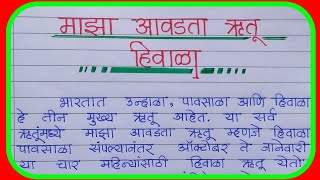 माझा आवडता ऋतू
हिवाळा
भारतात उन्हाळा, पावसाळा आणि हिवाळा
हे तीन मुख्य ऋतू आहेत. या सर्व
ऋतूंमध्ये माझा आवडता ऋतू म्हणजे हिवाळा
पावसाळा संपल्यानंतर ऑक्टोबर ते जानेवारी
या चार महिन्यांसाठी हिवाळा ऋतू येतो